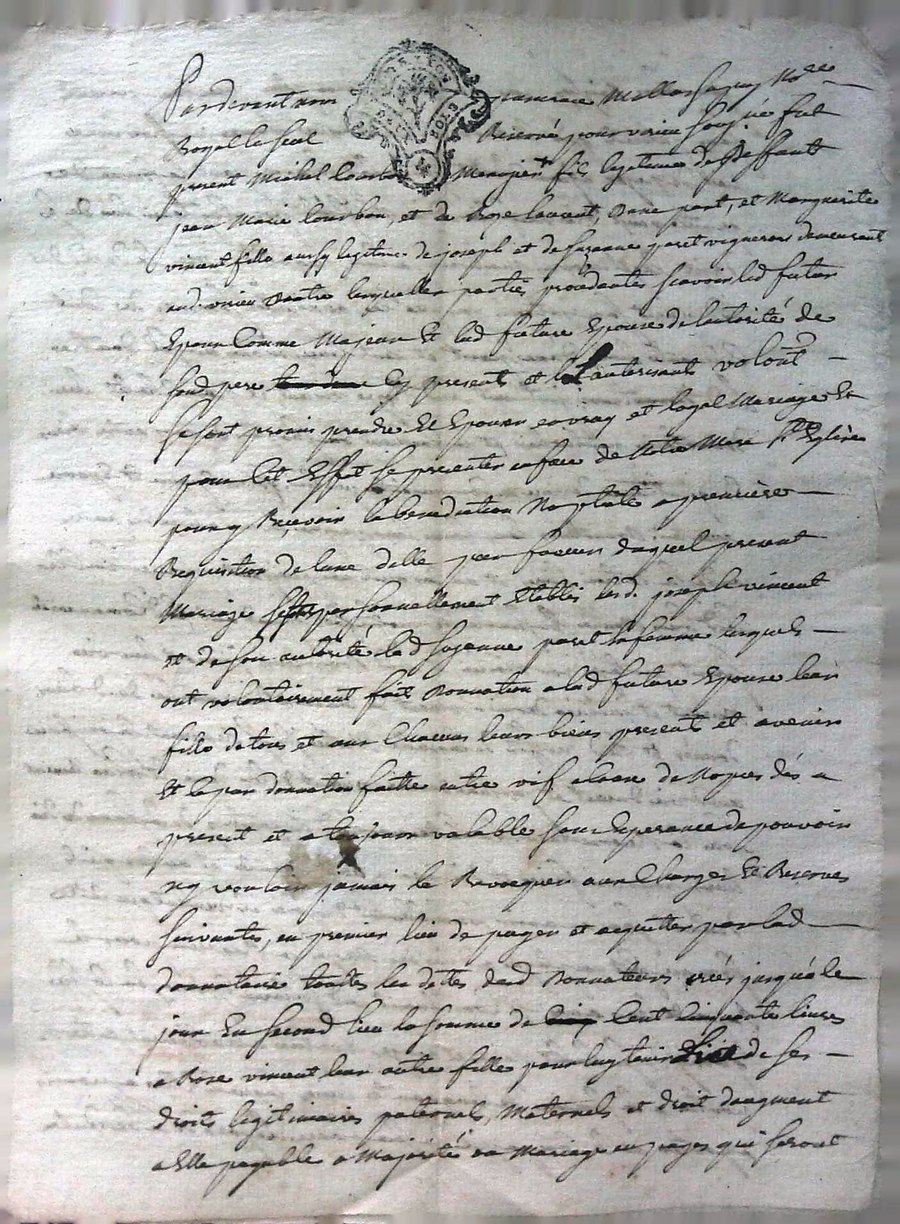 Pardevant nous
Royal le seul Reservé pour fut
present Michel Courbon fils legitime de deffunt
jean Marie Courbon, et de Roze laurent, Dune part, et Marguerite
vincent fille aussy legitime de joseph et de Suzanne paret vignerons demeurant
Dautre lesquelles parties procedantes scavoir led futur
Epoux Comme Majeur Et lad future Epouse de lautorité de
sond pere cy present et lautorisant volont
se sont promis prendre Et Epouser en vray et loyal Mariage Et
pour Cet Effet se presenter en face de Notre Mere Ste Eglise
pour y Recevoir la benediction Nuptiale a premiere
Requisition de lune delle en faveur duquel present
Mariage se sont personnellement Etablis lesd. joseph vincent
et de son autorité lad Suzanne paret sa femme lesquels
ont volontairement fait Donnation a lad future Epouse leur
fille de tous et un Chacun leurs biens present et avenir
Et ce par donnation faitte entre vif a cause de Nopces dés a
present et a toujours valable sans Esperance de pouvoir
ny vouloir jamais le Revocquer aux Charges Et Reserves
suivantes, en premier lieu de payer et acquitter par lad
donnataire touttes les dettes desd Donnateurs jusqua ce
jour En second lieu la somme de Cent Cinquante livres
a Roze vincent leur autre fille pour luy tenir lieu de ses
droits legitimaires paternels, Maternels et droit daugment
a Elle payable a Majorité ou Mariage en payes qui seront